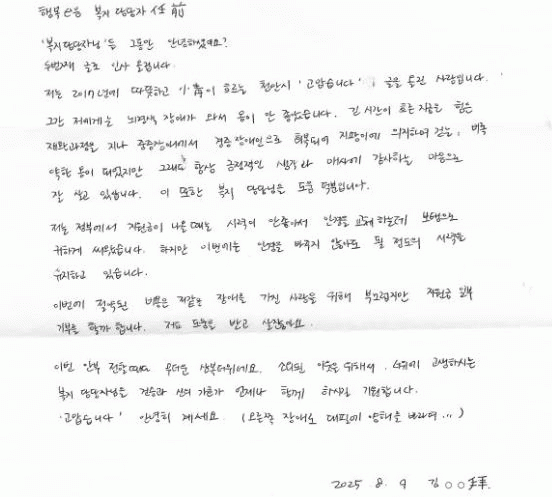 행복e음 복지 담당자 任 前
'복지담당자님'들 그동안 안녕하셨어요?
두번째 글로 인사 올립니다.
저는 2017년에 따뜻하고 小靑이 흐르는 천안시 '고맙습니다', 글을 올린 사람입니다.
그간 저에게는 뇌경색 장애가 와서 몸이 안 좋았습니다. 긴 시간이 흐른 지금은 힘든
재활과정을 지나 중증장애에서 경증장애인으로 회복되어 지팡이에 의지하여 걷는, 비록
약한 몸이 되었지만 그래도 항상 긍정적인 생각과 매사에 감사하는 마음으로
잘 살고 있습니다. 이 또한 복지 담당님을 도움 덕분입니다.
저는 정부에서 지원금이 나올때는 시력이 안좋아서 안경을 교체하는데 보탬으로
귀하게 써왔습니다. 하지만 이번에는 안경을 바꾸지 않아도 될 정도의 시력을
유지하고 있습니다.
이번에 절약된 비용은 저같은 장애를 가진 사람을 위해 부끄럽지만 지원금 일부
기부를 할까 합니다. 저도 도움을 받고 살잖아요.
이번 안부 전할때는 무더운 삼복더위에요. 소외된 이웃을 위해서, 너위에 고생하시는
복지 담당자님들 건승과 신의 가호가 언제나 함께 하시길 기원합니다.
'고맙습니다' 안녕히 계세요. (오른쪽 장애로 대필에 양해를 바라며...)
2025 8. 9 김○○ 拜.